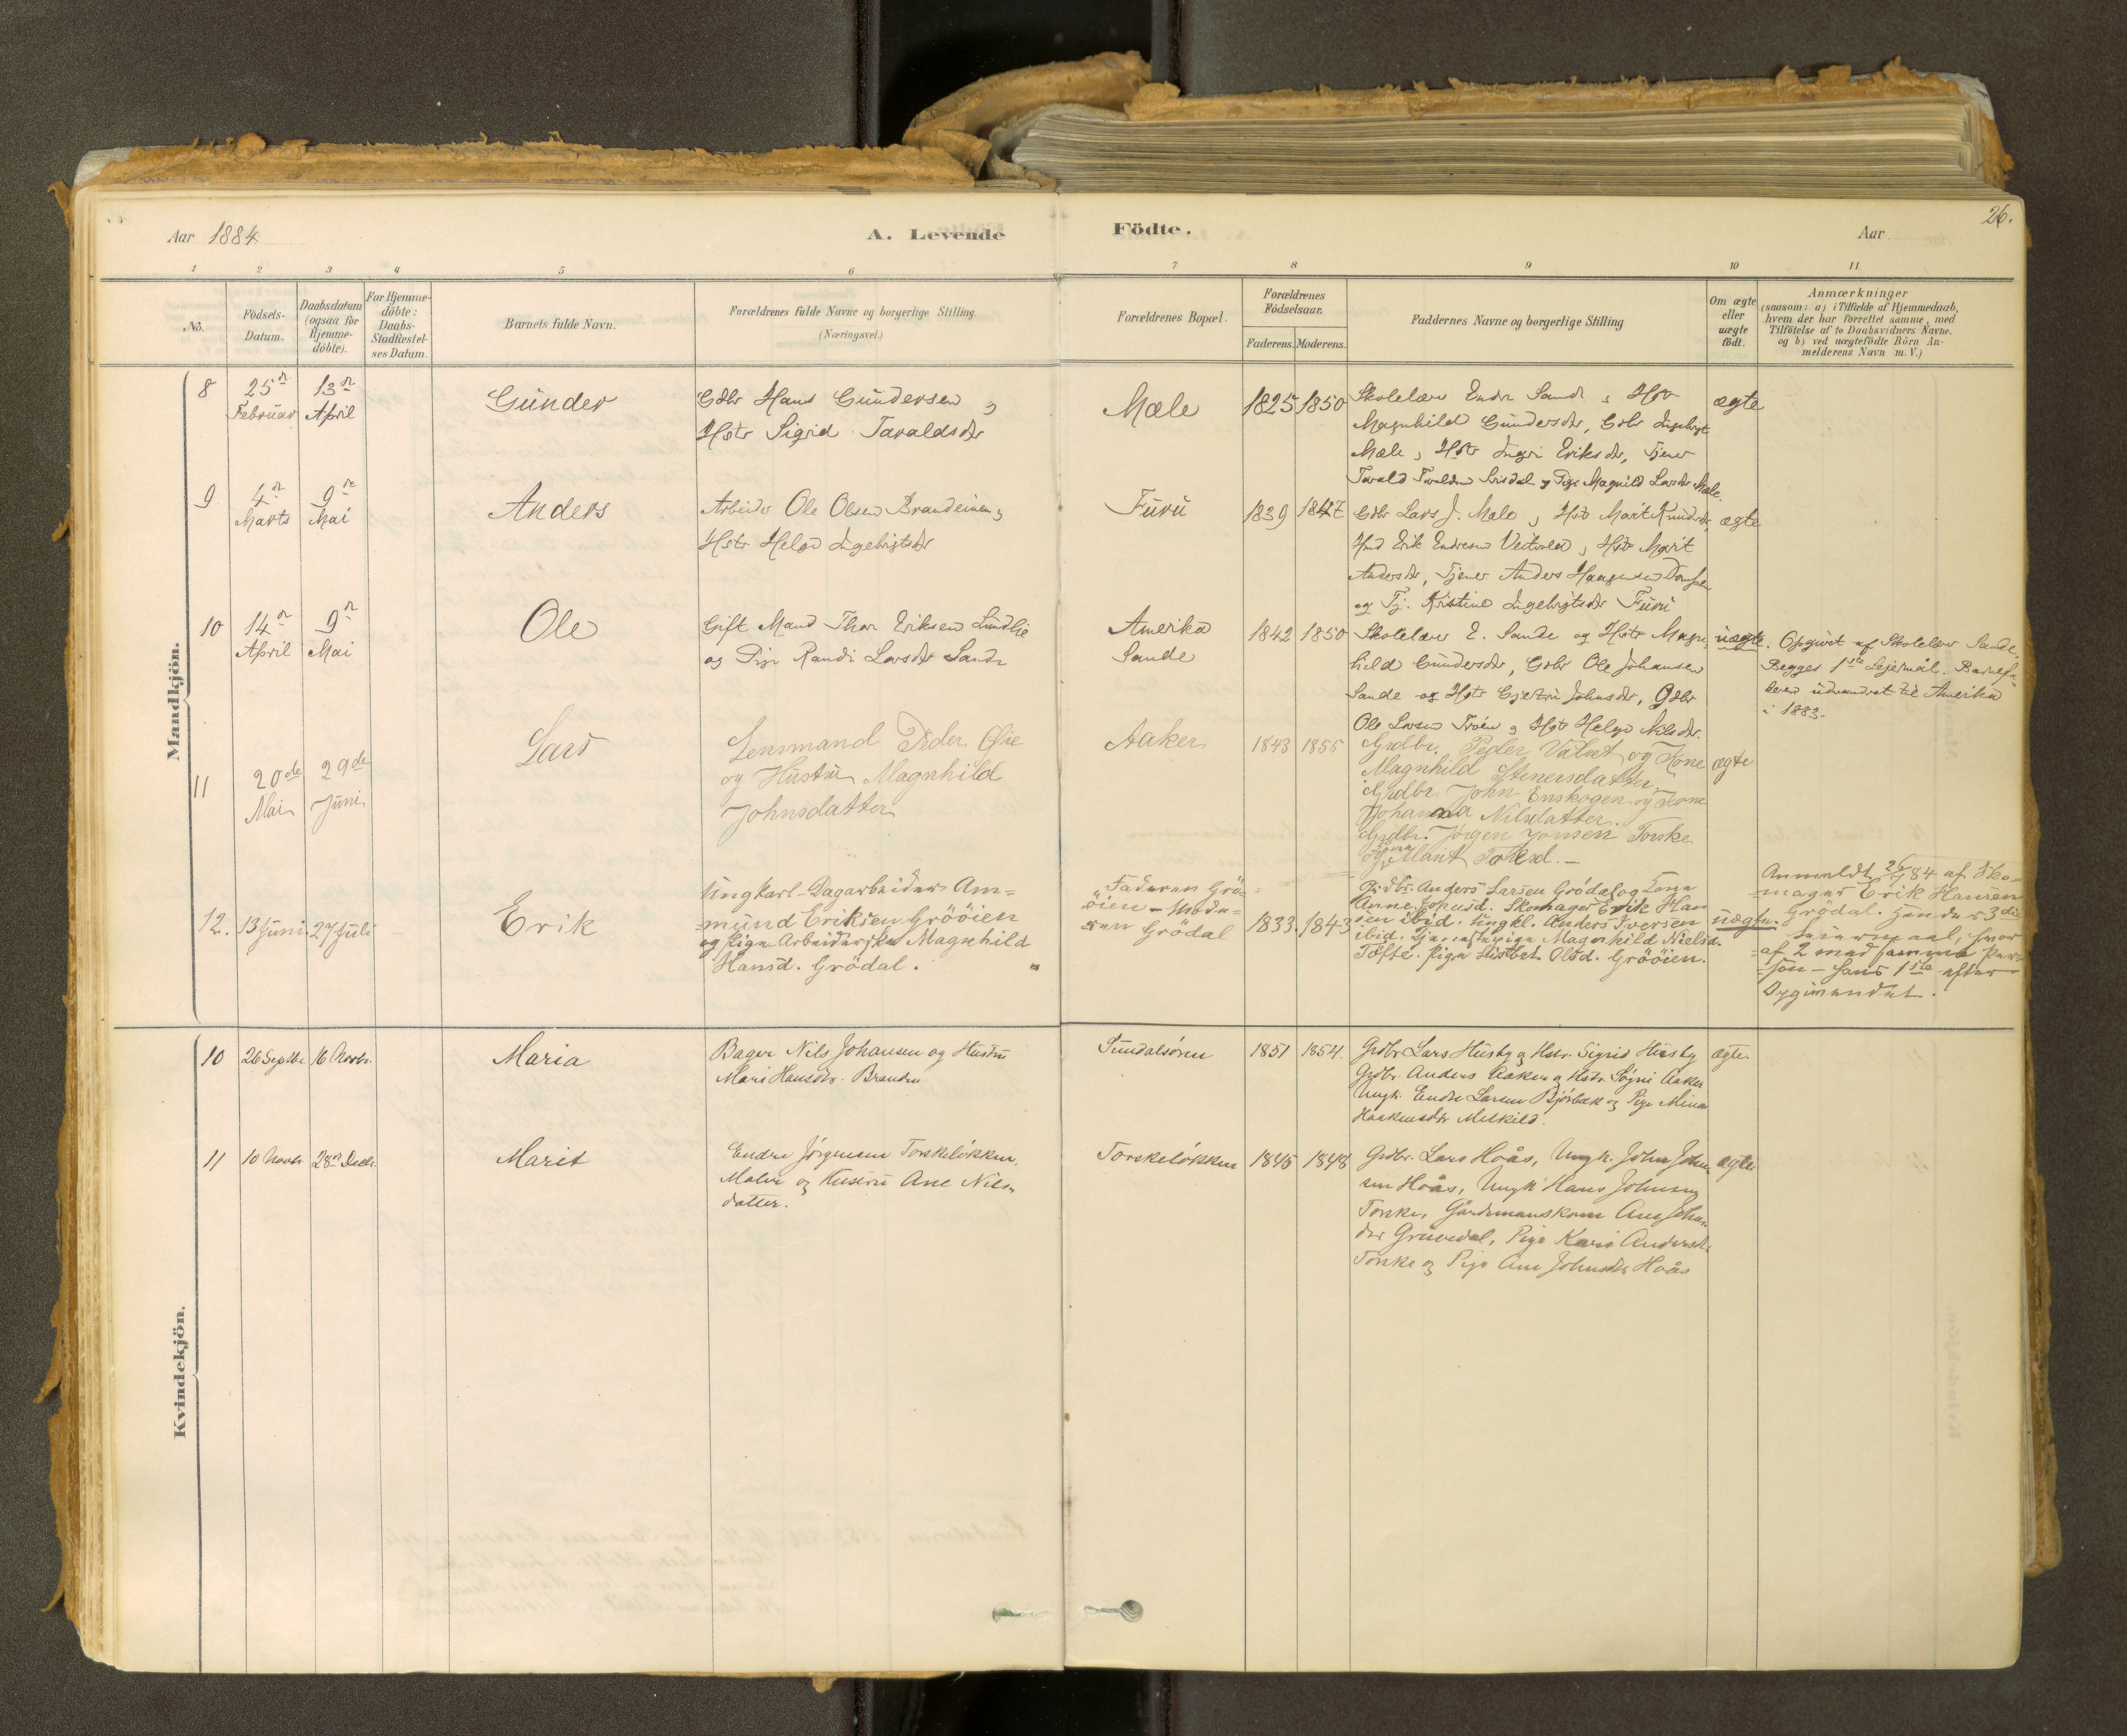 Aar 1884
A. Levende
Födte.
Aar
26.
1 2 3 4 5 6 7 8 9 10 11
No.
Födsels-
Datum.
Daabsdatum
(ogsaa for
Hjemme-
döbte).
For Hjemme-
döbte:
Daabs-
Stadfæstel-
ses Datum.
Barnets fulde Navn.
Forældrenes fulde Navne og borgerlige Stilling.
(Næringsvei.)
Forældrenes Bopæl.
Forældrenes
Födselsaar.
Faderens. Moderens.
Faddernes Navne og borgerlige Stilling
Om ægte
eller
uægte
födt.
Anmærkninger
(saasom: a) i Tilfælde af Hjemmedaab,
hvem der har forrettet samme, med
Tilföielse af to Daabsvidners Navne.
og b) ved uægtefödte Börn An-
melderens Navn m. V.)
Mandkjön.
8
25de
Februar
13de
April
Gunder
Gdbr Hans Gundersen og
Hstr Sigrid Taraldsdr
Mæle
1825 1850
Skolelærer Endr Sande, Hstr
Magnhild Gundersdr, Gdbr Ingebrigt
Mæle, Hstr Ingri Eriksdr, Tjener
Tarald Taraldsen og Pige Magnild Larsdr Mæle.
ægte
9
4de
Marts
9de
Mai
Anders
Arbeider Ole Olsen og
Hstr Helga Ingebrigtsdr
Furu
1839 1847
Gdbr Lars J. Mæle, Hstr Marit Knudsdr,
Hmd Erik Endresen, Hstr Marit
Andersdr, Tjener Anders Haagensen
og Tj. Kristine Ingebrigtsdr Furu
ægte
10
14de
April
9de
Mai
Ole
Gift Mand Thor Eriksen Lundlie
og Pige Randi Larsdr Sande
Amerika
Sande
1842 1850
Skolelærer E. Sande og Hstr Magn-
hild Gundersdr, Gdbr Ole Johansen
Sande og Hstr Gjertru Johnsdr, Gdbr
Ole Larsen og Hstr Helga
uægte.
Opgivet af Skolelærer Sande,
Begges 1ste Lejermål. Barnefa-
deren udvandret til Amerika
i 1883.
11
20de
Mai
29de
Juni
Lars
Lensmand Peder Øie
og Hustru Magnhild
Johnsdatter
Aaker
1843 1855
Grdbr. Peder og Kone
Magnhild Stenersdatter.
Grdbr. John Enskogen og Kone
Johanna Nilsdatter.
Grdbr. Jörgen Jonsen Torske
og Kone Marit Toresd. -
ægte
12.
13 Juni. 27 Juli
Erik
Ungkarl-Dagarbeider Am-
mund Eriksen Grööien
og Pige Arbeiderske Magnhild
Hansd. Grödal.
Faderen Grö-
öien - Mode-
ren Grödal
1833. 1843
Grdbr. Anders Larsen Grödal og Kone
Anne Johnsd. Skomager Erik Han
sen ibid. Ungkl. Anders Iversen
ibid. Tjenestepige Magnhild Nielsd.
Tofte. Pige Lisbet Olsd. Grööien.
uægte.
Anmeldt 26/7 84 af Sko-
mager Erik Hansen
Grödal. Hendes 3die
Leiermaal, hvor
af 2 med samme Per-
son - hans 1ste efter
Opgivendet.
Kvindekjön.
10
26 Septbr. 16 Novbr.
Maria
Bager Nils Johansen og Hustru
Mari Hansdr. Branden
Sundalsøren
1851 1854.
Grdbr Lars Husby og Hstr. Sigrid Husby
Grdbr. Anders Aaker og Hstr. Aaker
Ungk. Endre Larsen Bjørbæk og Pige Mina
Haakensdr Melkild.
ægte
11
10 Novbr. 28de Decbr.
Marit
Endre Jörgensen Torskeløkken,
Maler og Hustru Ane Nils-
datter.
Torskeløkken
1845 1848
Grdbr. Lars Hoås, Ungk. John John-
sen Hoås, Ungk Hans Johnsen
Torske, Gårdmandskone Ane Johns-
dr Gravedal, Pige Kari Andersdr
Torske og Pige Ane Johnsdr Hoås
ægte